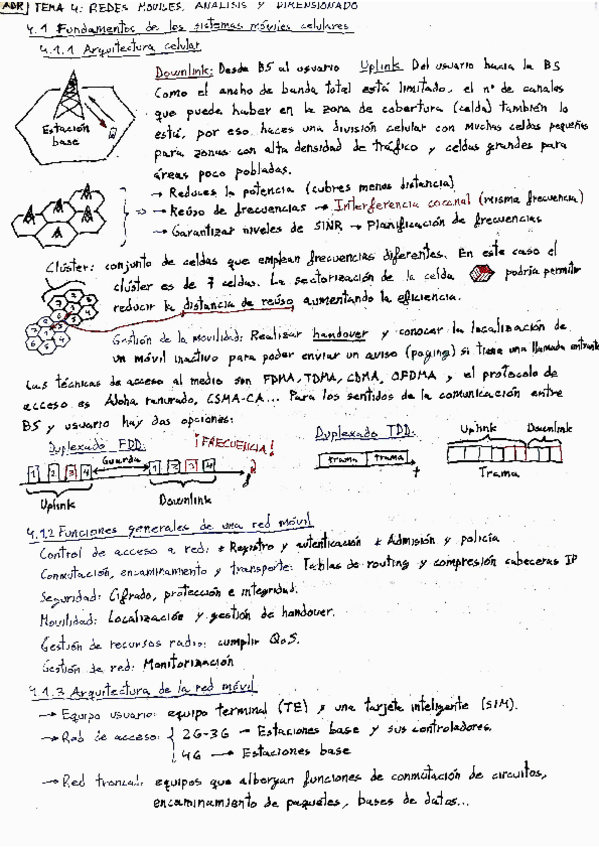 ADR TEMA 4: REDES MÓVILES, ANÁLISIS Y DIMENSIONADO
4.1 Fundamentos de los sistemas móviles celulares
4.1.1 Arquitectura celular
Downlink: Desde BS al usuario Uplink Del usuario hacia la BS
Como el ancho de banda total está limitado, el nº de canales
que puede haber en la zona de cobertura (celda) también lo
está, por eso haces una división celular con muchas celdas pequeñas
para zonas con alta densidad de tráfico y celdas grandes para
áreas poco pobladas.
Estación
base
→ Reduces la potencia (cubres menos distancia)
⇒ → Reúso de frecuencias → Interferencia cocanal (misma frecuencia)
→ Garantizar niveles de SINR → Planificación de frecuencias
Clúster: conjunto de celdas que emplean frecuencias diferentes. En este caso el
clúster es de 7 celdas. La sectorización de la celda podría permitir
reducir la distancia de reúso aumentando la eficiencia.
Gestión de la movilidad: Realizar handover y conocer la localización de
un móvil inactivo para poder enviar un aviso (paging) si tiene una llamada entrante
Las técnicas de acceso al medio son FDMA, TDMA, CDMA, OFDMA y el protocolo de
acceso es Aloha ranurado, CSMA-CA... Para los sentidos de la comunicación entre
BS y usuario hay dos opciones:
Duplexado FDD: ¡FRECUENCIA!
Guarda
1 2 3 4 1 2 3 4 f
Uplink Downlink
Duplexado TDD:
trama trama t
Uplink Downlink
Trama
4.1.2 Funciones generales de una red móvil
Control de acceso a red: * Registro y autenticación * Admisión y policía
Conmutación, encaminamiento y transporte: Tablas de routing y compresión cabeceras IP
Seguridad: Cifrado, protección e integridad.
Movilidad: Localización y gestión de handover.
Gestión de recursos radio: cumplir QoS.
Gestión de red: Monitorización
4.1.3 Arquitectura de la red móvil
→ Equipo usuario: equipo terminal (TE) y una tarjeta inteligente (SIM).
→ Red de acceso: { 2G-3G → Estaciones base y sus controladores.
4G → Estaciones base
→ Red troncal: equipos que albergan funciones de conmutación de circuitos,
encaminamiento de paquetes, bases de datos...